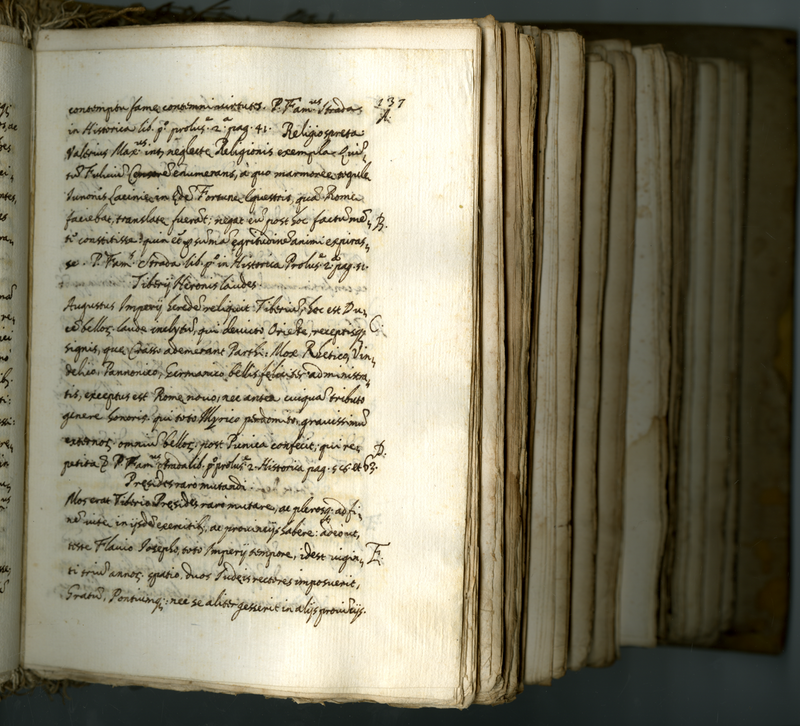 137
contemptu famę contemni virtutes. P. Fam.us Strada
in Historica lib. p.o prolus.e 2.a pag. 41. Religio spreta
Valerius Max.us int, neglectę Religionis exempla Quin,
tũ Fuluiũ Censorẽ enumerans, a quo marmoreę tegulę
Iunonis Lacinię in Ędẽ Fortunę Equestris, quã Romę
faciebat, translatę fuerãt: negat eũ post hoc factũ mẽ,
tẽ constitisse: quin et p summã ęgritudinẽ animi expiras,
se. P. Fam. Strada lib. p.o in Historica Prolus.e 2. pag. 51.
Tiberij Neronis laudes.
Augustus Imperij hęredẽ reliquit Tiberiũ, hoc est Du,
cẽ belloꝝ laude inclytũ, qui deuicto Oriẽte, receptisq;
signis, quę Crasso ademerant Parthi: Mox Rhetico, Vin,
delico, Pannonico, Germanico bellis feliciter administra,
tis, exceptus est Romę nouo, nec antea cuiquã tributo
genere honoris: qui toto Illyrico perdomito, grauissimũ
externoꝝ omniũ belloꝝ post Punica confecit; qui re,
petita P. Fam.us Strada lib. p.o prolus.e 2. Historica pag. 56 et 63.
Pręsides raro mutandi.
Mos erat Tiberio Pręsides raro mutare, ac plerosq; ad fi,
nẽ vitę in ijsdẽ exercitib, ac prouincijs habere: adeo ut,
teste Flauio Iosepho, toto Imperij tempore, idest vigin,
ti triũ annoꝝ spatio, duos Iudęis rectores imposuerit,
Gratũ, Pontiumq;: nec se aliter gesserit in alijs prouĩcijs.
A.
B.
C.
D.
E.